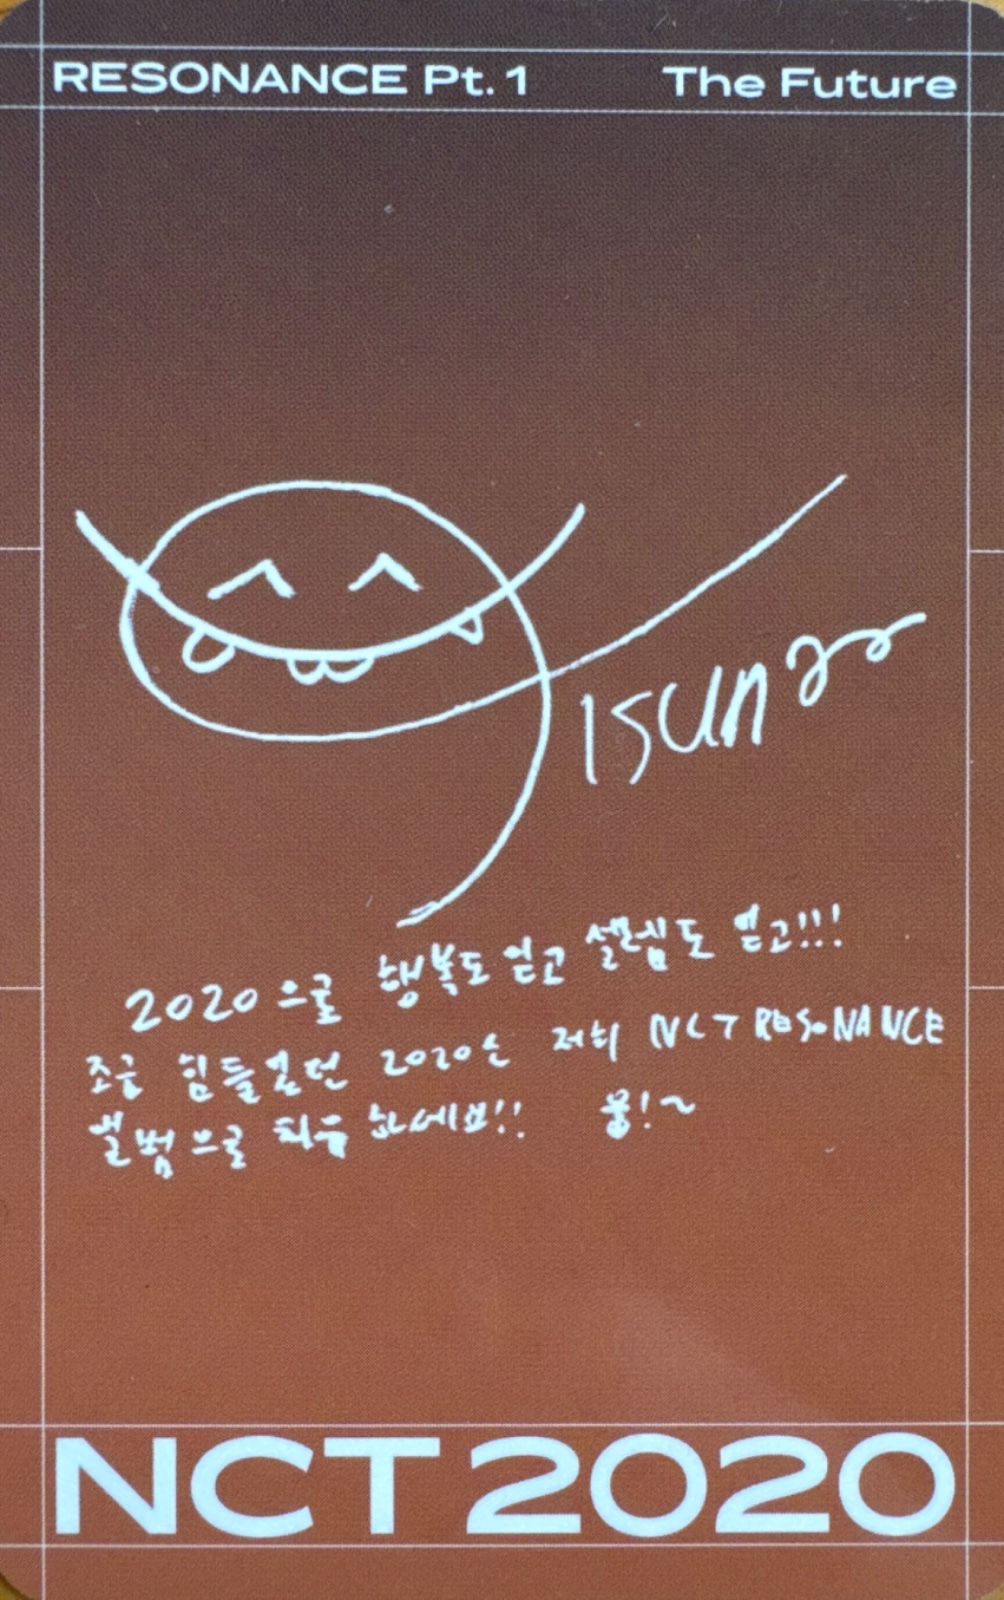 RESONANCE Pt. 1 The Future
2020으로 행복도 얻고 설렘도 얻고!!!
조금 힘들었던 2020은 저희 NCT RESONANCE
앨범으로 치유하세요!! 용!~
NCT 2020